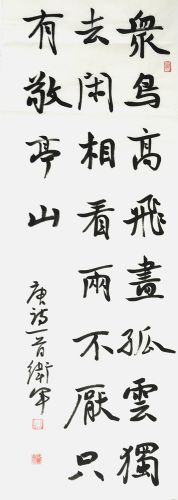 衆鳥高飛盡孤雲獨
去閑相看兩不厭只
有敬亭山
唐詩一首衛軍